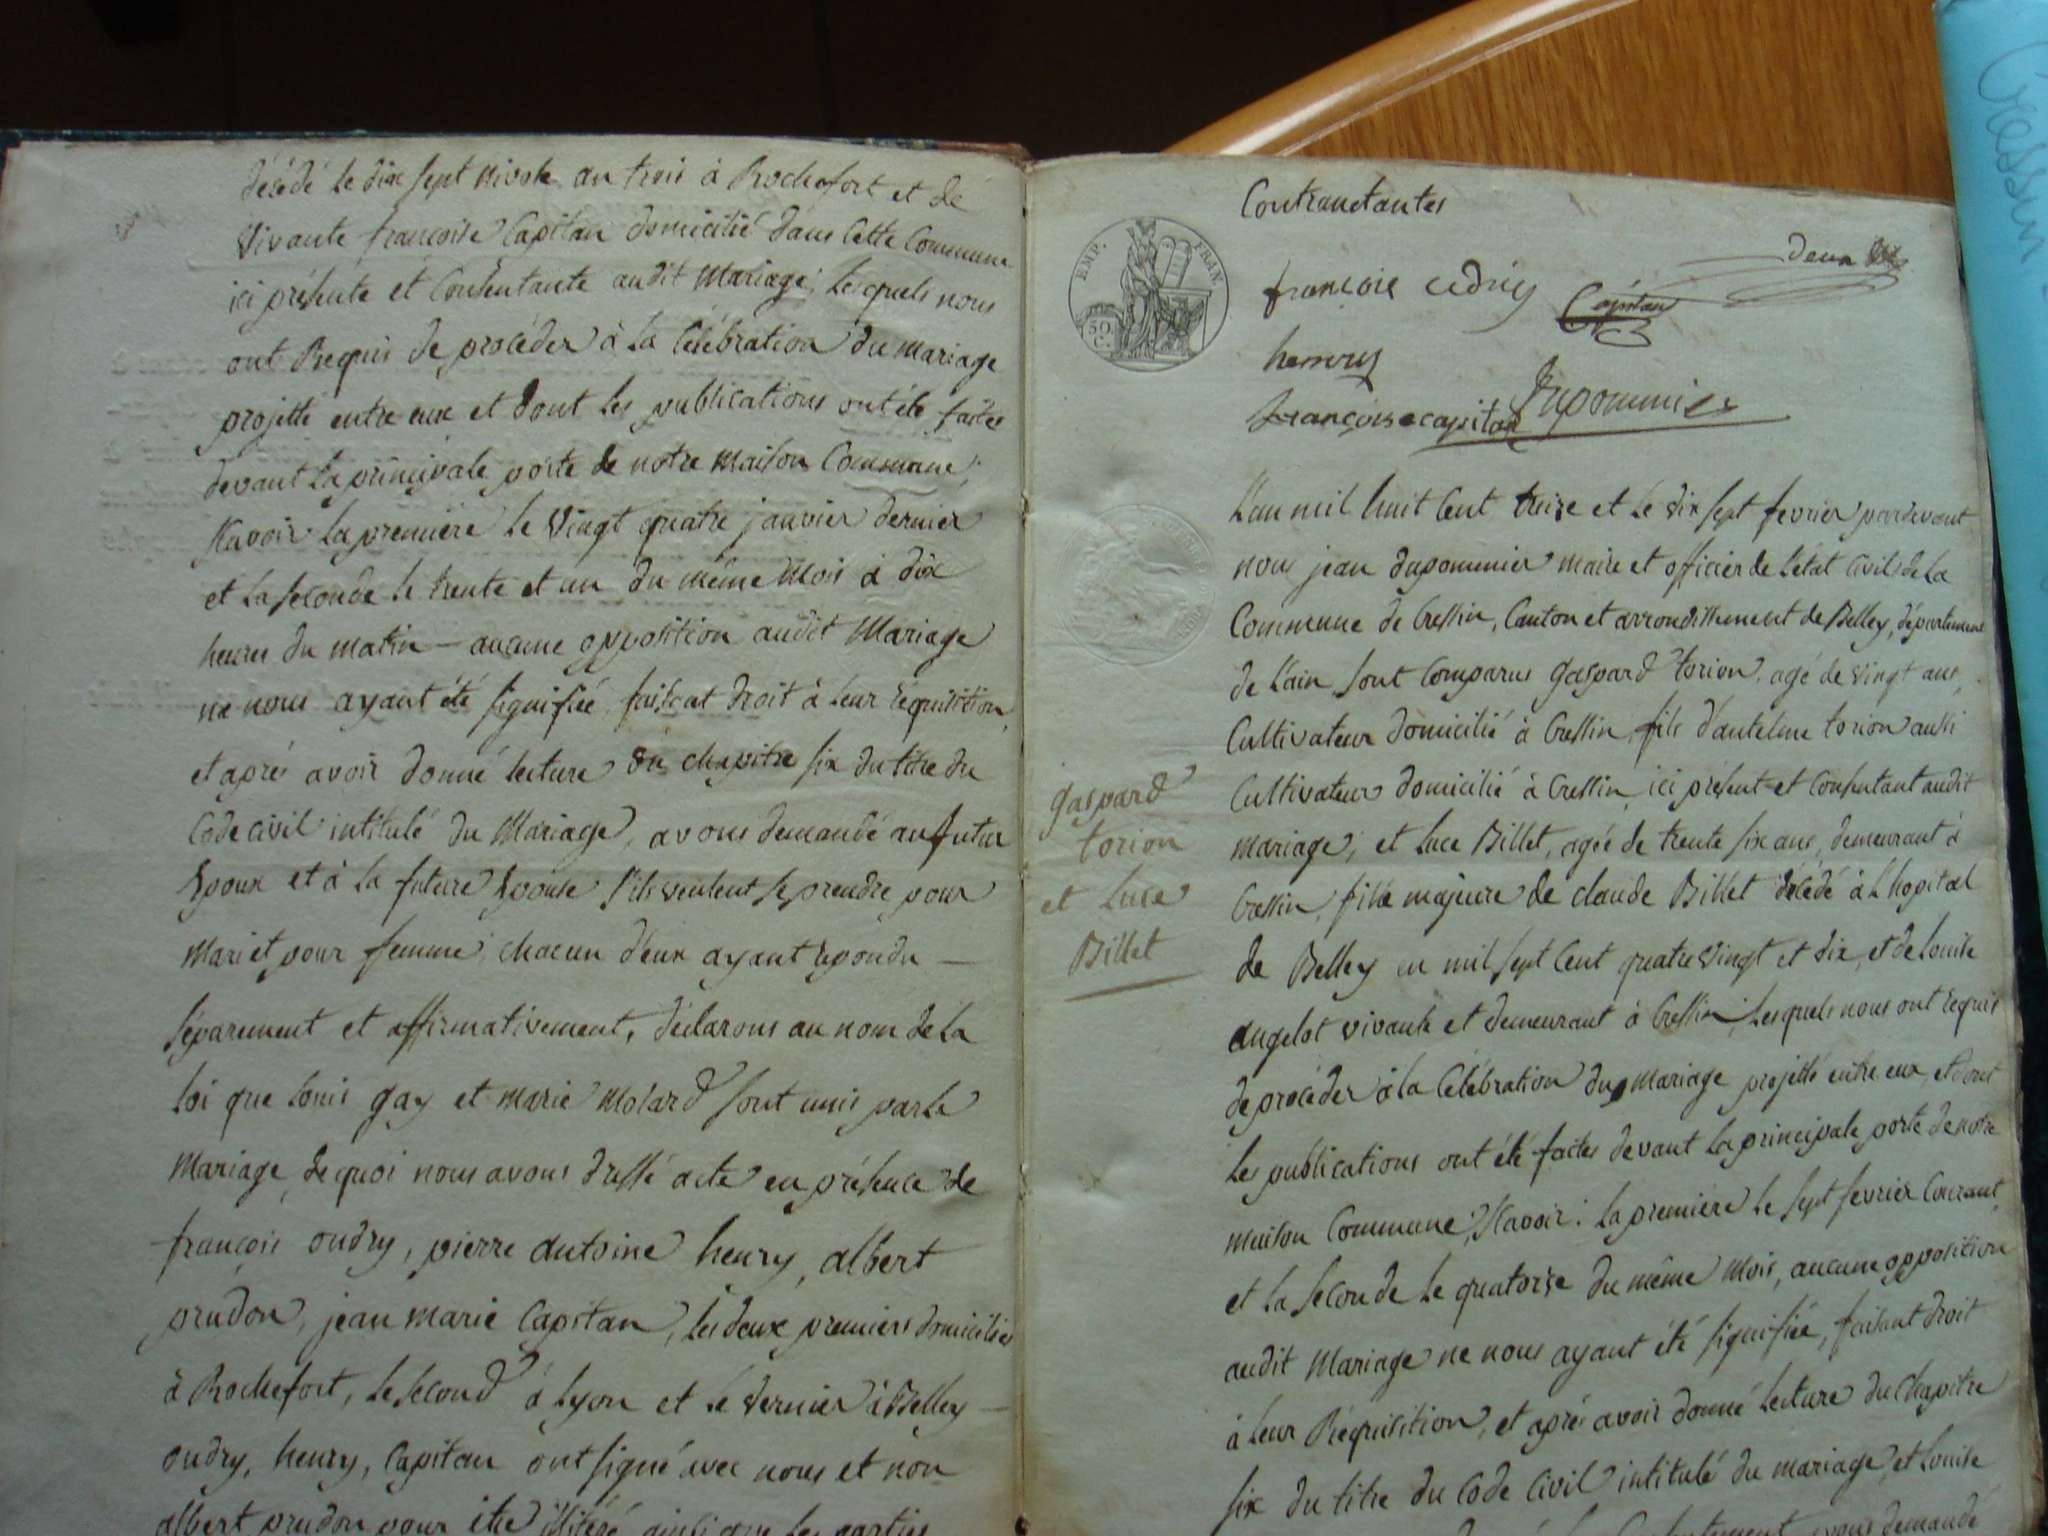 décédé le dix sept nivose an trois à Rochefort et de
vivante françoise Capitan domicilié dans Cette Commune
ici présente et Consentante audit Mariage; Lesquels nous
ont Requis de procéder à la Célébration du mariage
projetté entre eux et dont les publications ont été faites
devant la principale porte de notre maison Commune;
savoir la première le vingt quatre janvier dernier
et la seconde le trente et un du même mois à dix
heures du matin — aucune opposition audit Mariage
ne nous ayant été signifiée faisant droit à leur requisition,
et après avoir donné lecture du chapitre six du titre du
Code civil intitulé du Mariage, avons demandé au futur
Epoux et à la future Epouse s'ils veulent se prendre pour
mari et pour femme; chacun d'eux ayant repondu —
séparement et affirmativement, déclarons au nom de la
loi que Louis gay et marie Molard sont unis par le
Mariage, de quoi nous avons dressé acte en présence de
françois oudry, pierre antoine henry, albert
prudon, jean marie Capitan, les deux premiers domiciliés
à Rochefort, le second à Lyon et le dernier à Belley —
oudry, henry, Capitan ont signé avec nous et non
albert prudon pour être illitéré ainsi que les parties
Contractantes
EMP. FRAN.
50 C.
deux
françois
Capitan
henry
françoise capitan
Dupommier
gaspard
torion
et Luce
Billet
L'an mil huit Cent treize et le dix sept fevrier pardevant
nous jean dupommier maire et officier de l'état Civil de la
Commune de Cressin, Canton et arrondissement de Belley, département
de l'ain, sont Comparus gaspard torion, agé de vingt ans,
Cultivateur domicilié à Cressin, fils d'antelme torion aussi
Cultivateur domicilié à Cressin, ici présent et Consentant audit
mariage; et Luce Billet, agée de trente six ans, demeurant à
Cressin, fille majeure de claude Billet décédé à L'hopital
de Belley en mil sept Cent quatre vingt et dix, et de Louise
angelot vivante et demeurant à Cressin; Lesquels nous ont requis
de procéder à la Célébration du mariage projetté entre eux, et dont
les publications ont été faites devant la principale porte de notre
maison Commune; savoir: la première le sept fevrier Courant,
et la seconde le quatorze du même mois, aucune opposition
audit Mariage ne nous ayant été signifiée, faisant droit
à leur Réquisition, et après avoir donné lecture du Chapitre
six du titre du Code Civil intitulé du mariage, et Louise
avons demandé
Cressin